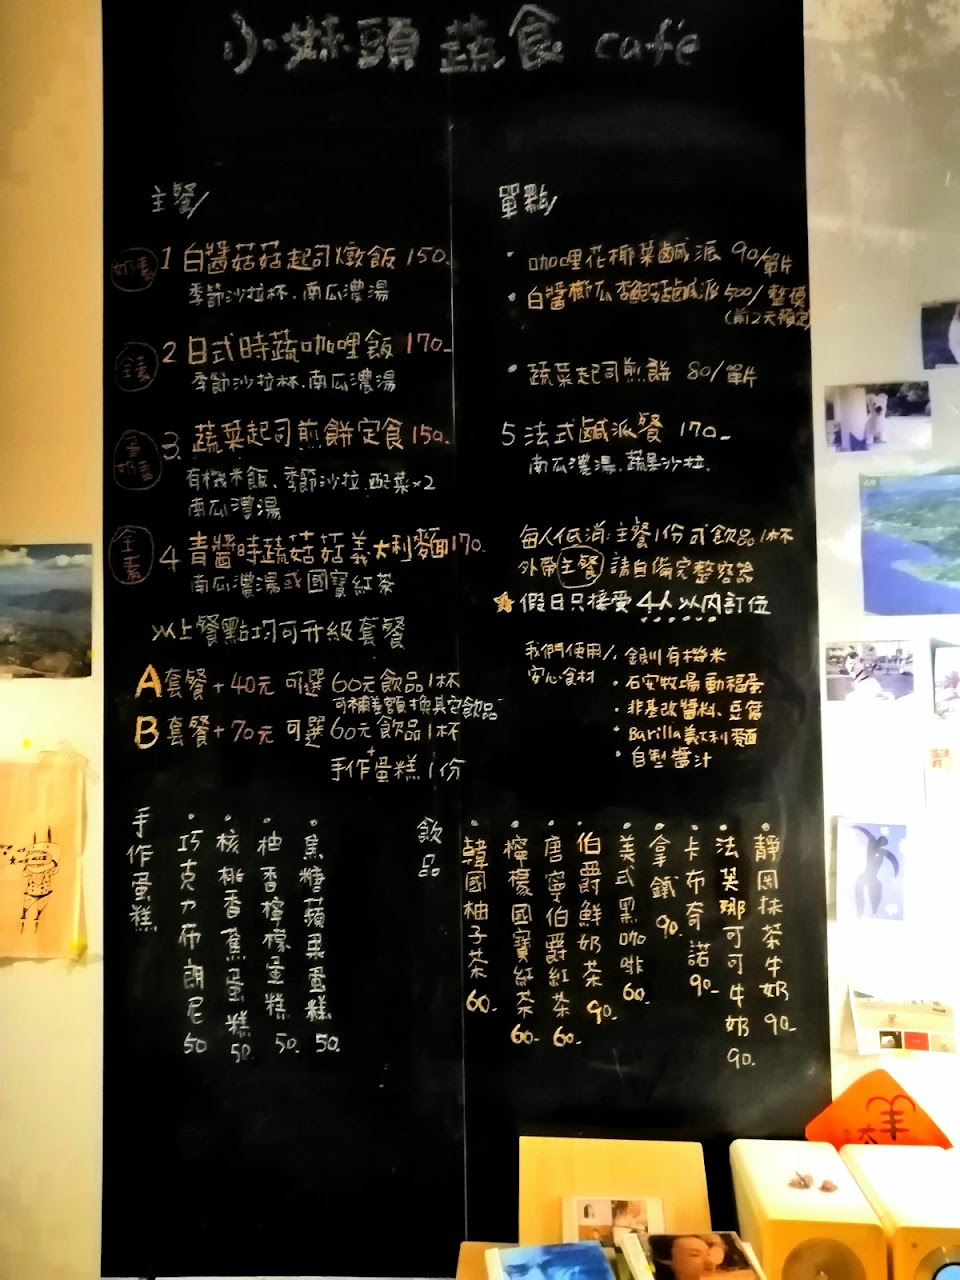 小獅頭蔬食 café
主餐/
奶素 1 白醬菇菇起司燉飯 150.
季節沙拉杯、南瓜濃湯
全素 2 日式時蔬咖哩飯 170-
季節沙拉杯、南瓜濃湯
蛋奶素 3. 蔬菜起司煎餅定食 150.
有機米飯、季節沙拉、配菜×2
南瓜濃湯
全素 4 青醬時蔬菇菇義大利麵 170.
南瓜濃湯或國寶紅茶
以上餐點均可升級套餐
A 套餐+40元 可選 60元飲品1杯
可補差額換其它飲品
B 套餐+70元 可選 60元飲品1杯
+
手作蛋糕1份
單點/
· 咖哩花椰菜鹹派 90/單片
· 白醬櫛瓜杏鮑菇鹹派 500/整模
(前2天預定)
· 蔬菜起司煎餅 80/單片
5 法式鹹派餐 170-
南瓜濃湯、蔬果沙拉.
每人低消:主餐1份 或飲品1杯
外帶主餐 請自備完整容器
假日只接受4人以內訂位
我們使用/
安心食材
· 銀川有機米
· 石安牧場動福蛋
· 非基改醬料、豆腐
· Barilla義大利麵
· 自製醬汁
手作蛋糕
· 巧克力布朗尼 50
· 核桃香蕉蛋糕 50.
· 柚香檸檬蛋糕 50.
· 焦糖蘋果蛋糕 50.
飲品
· 韓國柚子茶 60.
· 檸檬國寶紅茶 60-
· 唐寧伯爵紅茶 60-
· 伯爵鮮奶茶 90-
· 美式黑咖啡 60-
· 拿鐵 90.
· 卡布奇諾 90-
· 法芙娜可可牛奶 90.
· 靜岡抹茶牛奶 90-